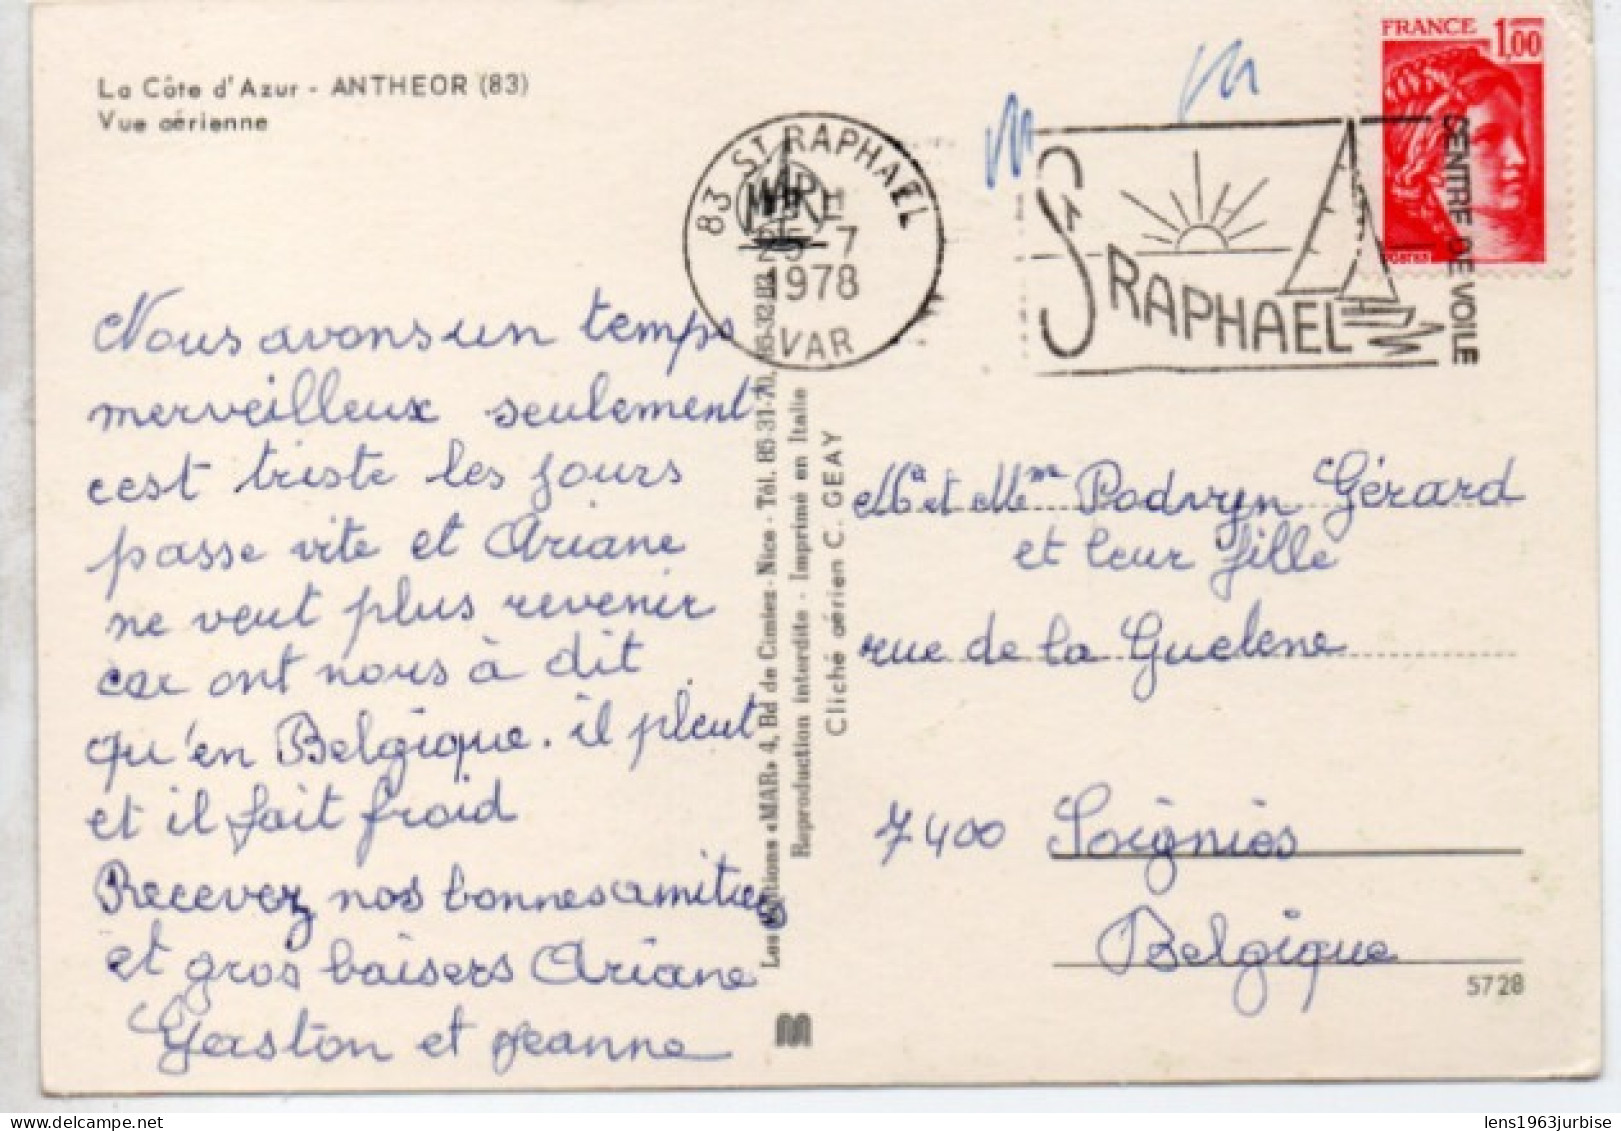 La Côte d'Azur - ANTHEOR (83)
Vue aérienne
Nous avons un temps
merveilleux seulement
cest triste les jours
passe vite et Ariane
ne veut plus revenir
car ont nous à dit
qu'en Belgique. il pleut
et il fait froid
Recevez nos bonnes amitiés
et gros baisers Ariane
Gerston et Jeanne
83 ST RAPHAEL
25-7
1978
VAR
ST RAPHAEL
CENTRE DE VOILE
FRANCE 1,00
POSTES
Les Editions «MAR» 4, Bd de Cimiez - Nice - Tél. 85-31-70, 85-32-82
Reproduction interdite - Imprimé en Italie
Cliché aérien C. GEAY
Mr et Mme Podvryn Gérard
et leur fille
rue de la Guelene
7400 Soignies
Belgique
5728
lens1963jurbise